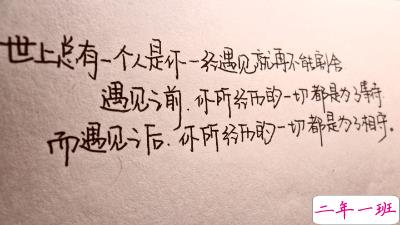 世上总有一个人是你一经遇见就再不能割舍
遇见之前.你所经历的一切都是为了等待
而遇见之后.你所经历的一切都是为了相守。
二年一班